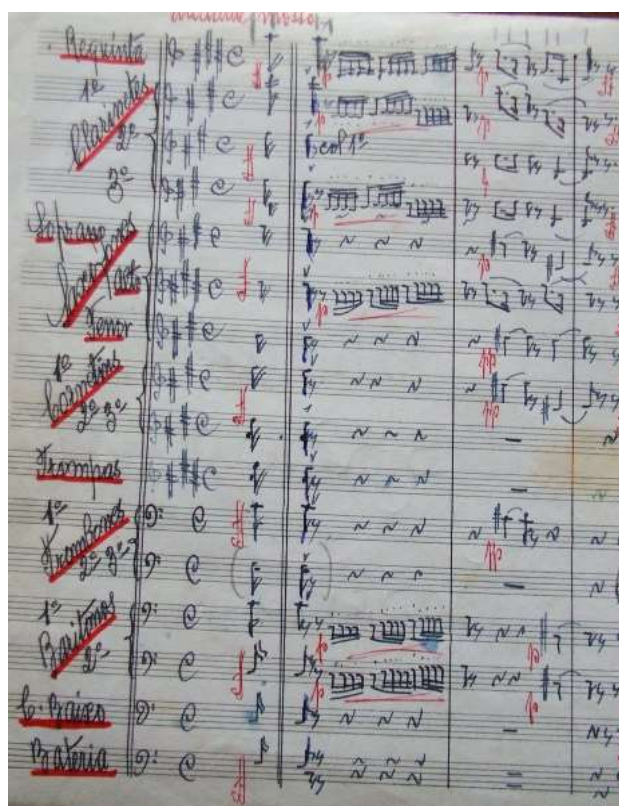 Requinta
1º
Clarinetes
2º
3º
col 1º
Soprano
Saxofones
alto
Tenor
1º
Cornetins
2º 3º
Trompas
1º
Trombones
2º 3º
1º
Baritonos
2º
C. Baixo
Bateria